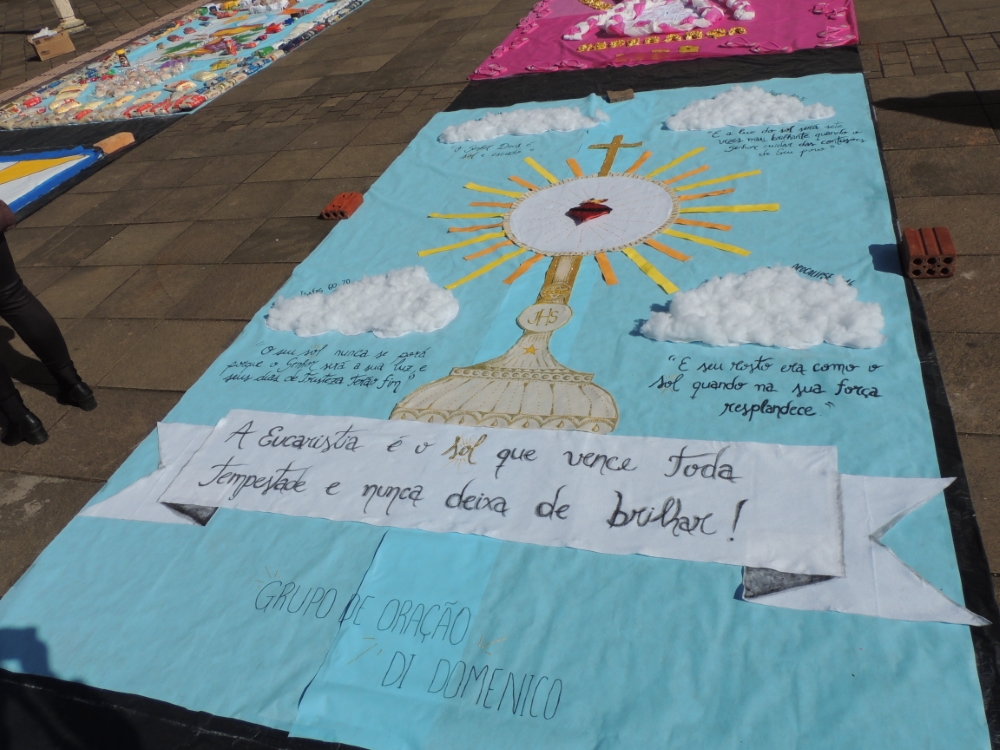 "E a luz do sol será sete
vezes mais brilhante quando o
Senhor cuidar das
de seu povo"
O Senhor Deus é
sol e escudo
Isaías 60-20
"O seu sol nunca se porá
porque o Senhor será a sua luz, e
seus dias de tristeza terão fim"
JHS
APOCALIPSE
"E seu rosto era como o
sol quando na sua força
resplandece"
A Eucaristia é o sol que vence toda
tempestade e nunca deixa de brilhar!
GRUPO DE ORAÇÃO
DI DOMENICO